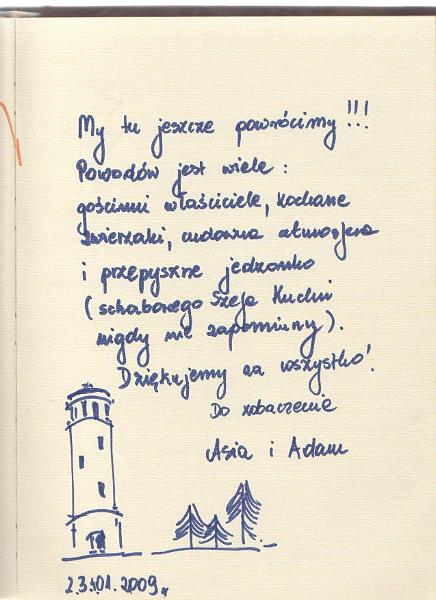 My tu jeszcze powrócimy!!!
Powodów jest wiele:
gościnni właściciele, kochane
zwierzaki, cudowna atmosfera
i przepyszne jedzonko
(schabowego Szefa Kuchni
nigdy nie zapomnimy).
Dziękujemy za wszystko!
Do zobaczenia
Asia i Adam
23.01.2009r.